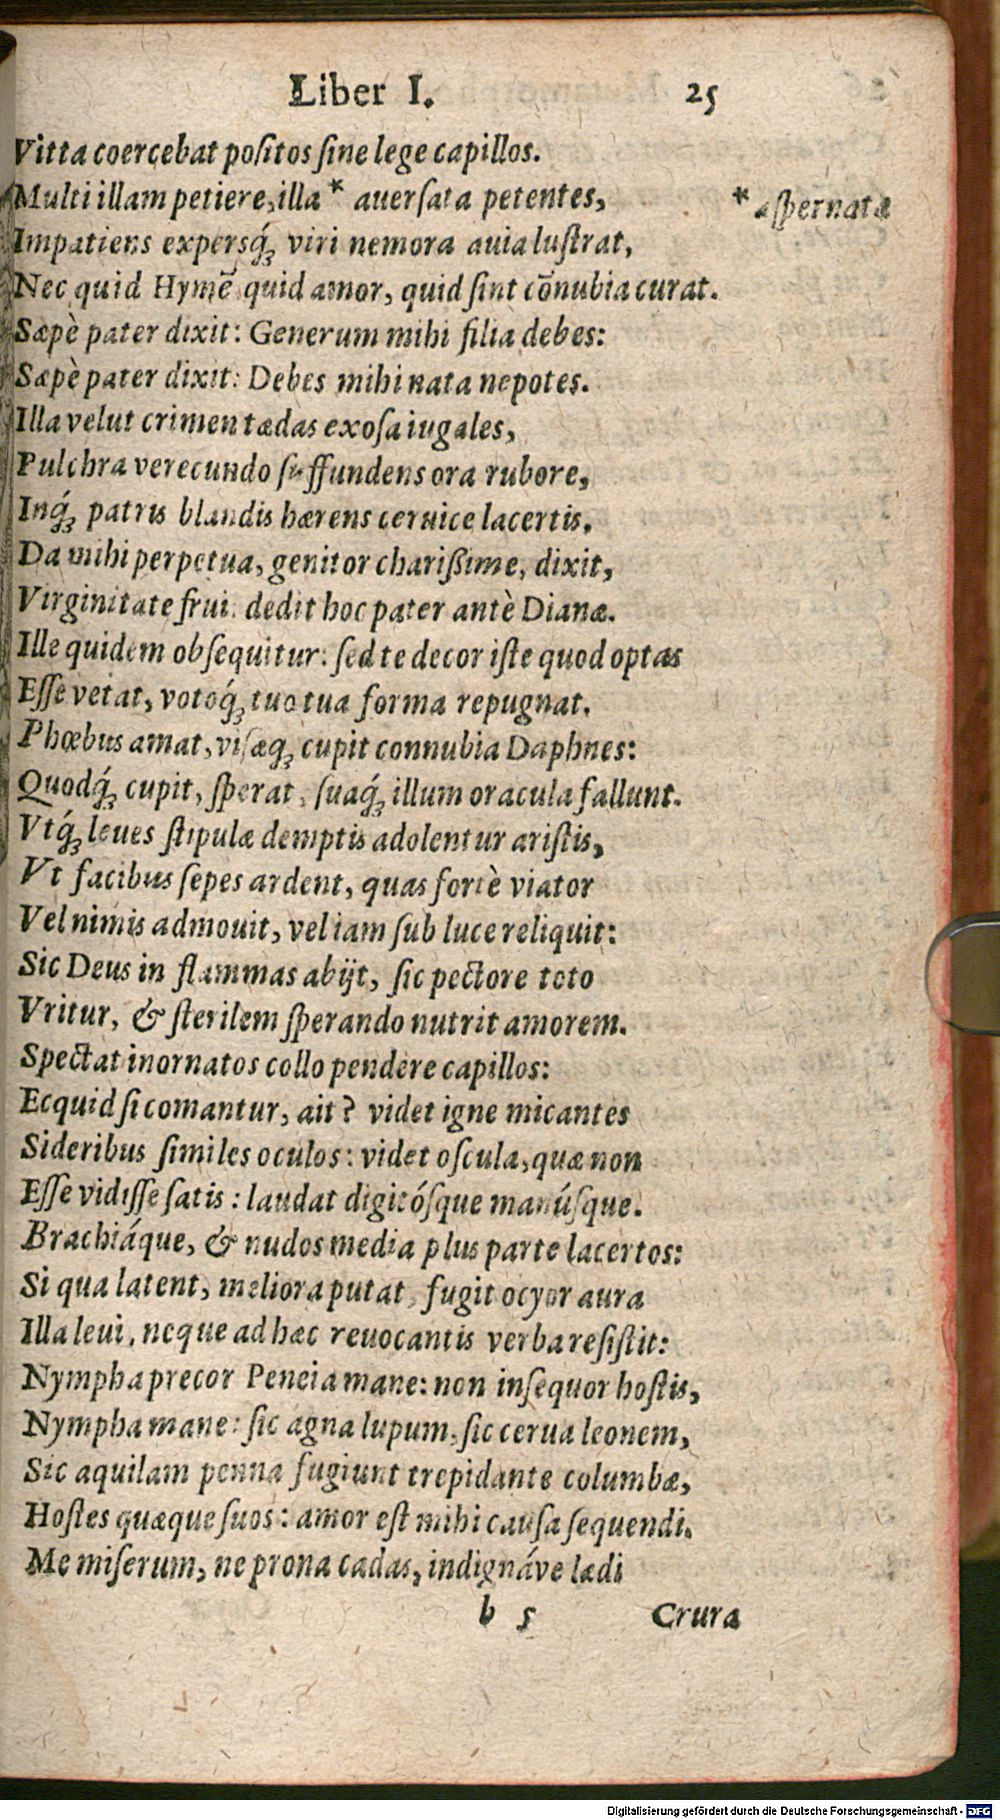 Liber I. 25
Vitta coercebat positos sine lege capillos.
Multi illam petiere, illa * auersata petentes,
* aspernatæ
Impatiens expersq́ꝫ viri nemora auia lustrat,
Nec quid Hymē quid amor, quid sint cōnubia curat.
Sæpè pater dixit: Generum mihi filia debes:
Sæpè pater dixit: Debes mihi nata nepotes.
Illa velut crimen tædas exosa iugales,
Pulchra verecundo suffundens ora rubore,
Inq́ꝫ patris blandis hærens ceruice lacertis.
Da mihi perpetua, genitor charißime, dixit,
Virginitate frui: dedit hoc pater antè Dianæ.
Ille quidem obsequitur: sed te decor iste quod optas
Esse vetat, votoq́ꝫ tuo tua forma repugnat.
Phœbus amat, visæqꝫ cupit connubia Daphnes:
Quodq́ꝫ cupit, sperat, suaq́ꝫ illum oracula fallunt.
Vtq́ꝫ leues stipulæ demptis adolentur aristis,
Vt facibus sepes ardent, quas fortè viator
Vel nimis admouit, vel iam sub luce reliquit:
Sic Deus in flammas abijt, sic pectore toto
Vritur, & sterilem sperando nutrit amorem.
Spectat inornatos collo pendere capillos:
Ecquid si comantur, ait? videt igne micantes
Sideribus similes oculos: videt oscula, quæ non
Esse vidisse satis: laudat digitósque manúsque.
Brachiáque, & nudos media plus parte lacertos:
Si qua latent, meliora putat, fugit ocyor aura
Illa leui, neque ad hæc reuocantis verba resistit:
Nympha precor Peneia mane: non insequor hostis,
Nympha mane: sic agna lupum, sic cerua leonem,
Sic aquilam penna fugiunt trepidante columbæ,
Hostes quæque suos: amor est mihi causa sequendi.
Me miserum, ne prona cadas, indignáve lædi
b 5 Crura
Digitalisierung gefördert durch die Deutsche Forschungsgemeinschaft - DFG